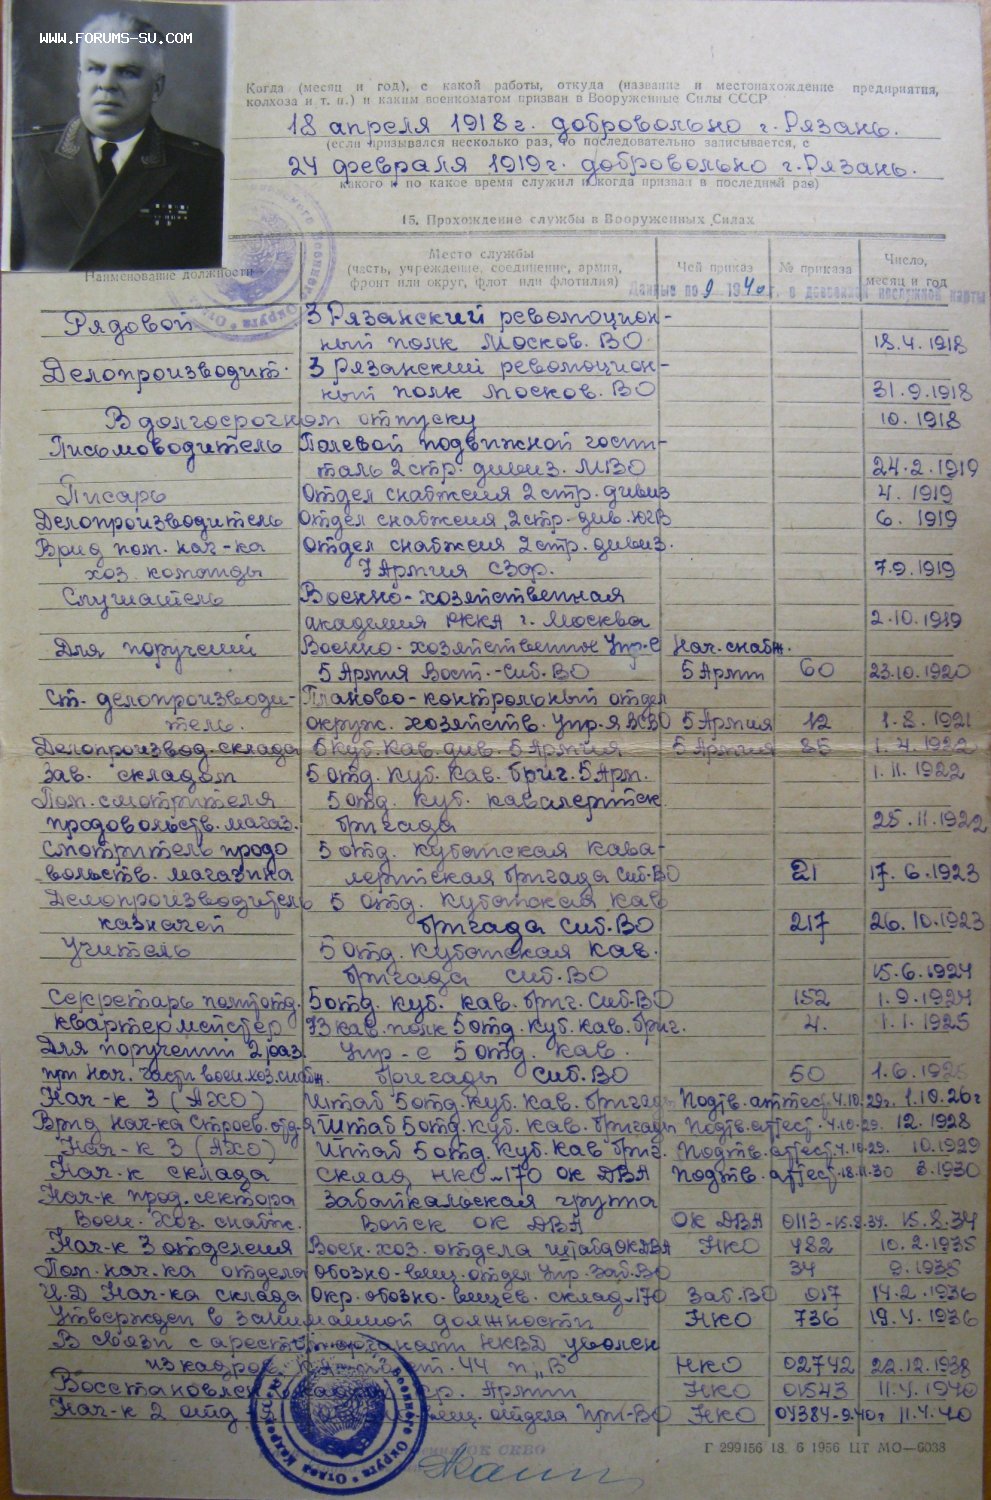 WWW.FORUMS-SU.COM
Когда (месяц и год), с какой работы, откуда (название и местонахождение предприятия,
колхоза и т. п.) и каким военкоматом призван в Вооруженные Силы СССР
18 апреля 1918 г. добровольно г. Рязань.
(если призывался несколько раз, то последовательно записывается, с
24 февраля 1919 г. добровольно г. Рязань.
какого и по какое время служил и когда призван в последний раз)
15. Прохождение службы в Вооруженных Силах
Наименование должности
Место службы
(часть, учреждение, соединение, армия,
фронт или округ, флот или флотилия)
Чей приказ
№ приказа
Число,
месяц и год
Данные по 9 1940 г. с послужной карты
Рядовой 3 Рязанский революцион-
ный полк Москов. ВО 18.4.1918
Делопроизводит. 3 Рязанский революцион-
ный полк Москов. ВО 31.9.1918
В долгосрочном отпуску 10.1918
Письмоводитель Полевой подвижной госпи-
таль 2 стр. дивиз. МВО 24.2.1919
Писарь Отдел снабжения 2 стр. дивиз 4.1919
Делопроизводитель Отдел снабжения 2 стр. див. 6.1919
Врид пом. нач-ка Отдел снабжения 2 стр. дивиз.
хоз. команды 7 Армия 7.9.1919
Слушатель Военно-хозяйственная
академия РККА г. Москва 2.10.1919
Для поручений Военно-хозяйственное Упр-е Нач. снабж.
5 Армия Вост.-Сиб. ВО 5 Армии 60 23.10.1920
Ст. делопроизводи- Планово-контрольный отдел
тель. окруж. хозяйств. Упр-я ВСВО 5 Армия 12 1.8.1921
Делопроизвод. склада 5 Куб. Кав. див. 5 Армия 5 Армия 85 1.4.1922
Зав. складом 5 отд. Куб. Кав. бриг. 5 Арм. 1.11.1922
Пом. смотрителя 5 отд. Куб. кавалерийск.
продовольств. магаз. бригада 25.11.1922
Смотритель продо 5 отд. Кубанская кава-
вольств. магазина лерийская бригада Сиб. ВО 21 17.6.1923
Делопроизводитель 5 отд. Кубанская Кав
казначей бригада Сиб. ВО 217 26.10.1923
Учитель 5 отд. Кубанская Кав.
бригада Сиб. ВО 15.6.1924
Секретарь политотд. 5 отд. Куб. Кав. бриг. Сиб. ВО 152 1.9.1924
Квартермейстер 73 кав. полк 5 отд. Куб. кав. бриг. 4. 1.1.1925
Для поручений 2 раз. Упр-е 5 отд. Кав.
при нач. части воен. хоз. снабж. бригады Сиб. ВО 50 1.6.
Нач-к 3 (АХО) Штаб 5 отд. Куб. Кав. бригады Подтв. аттест. 4.10.29г. 1.10.26г
Врид нач-ка Строев. отд-я Штаб 5 отд. Куб. Кав. бригады Подтв. аттест. 4.10.29. 12.1928
Нач-к 3 (АХО) Штаб 5 отд. Куб. Кав бриг. Подтв. аттест. 4.10.29. 10.1929
Нач-к склада Склад НКО-170 ОК ДВА Подтв. аттест. 18.11.30 8.1930
Нач-к прод. сектора Забайкальская группа
Воен. Хоз. снабж. Войск ОК ДВА ОК ДВА 0113-15.8.34. 15.8.34
Нач-к 3 отделения Воен. хоз. отдела штаба ОКДВА НКО 482 10.2.1935
Пом. нач-ка отдела Обозно-вещ. отдел Упр. Заб. ВО 34 9.1935
И.Д Нач-ка склада Окр. обозно-вещев. склад-170 Заб. ВО 017 14.2.1936
Утвержден в занимаемой должности НКО 736 19.4.1936
В связи с арестом органами НКВД уволен
из кадров ст. 44 п. „В" НКО 02742 22.12.1938
Восстановлен в кадрах Армии НКО 01543 11.4.1940
Нач-к 2 отд вещ. отдела При-ВО НКО 04384-9.40г 11.4.40
Г 299156 18. 6 1956 ЦТ МО—6038